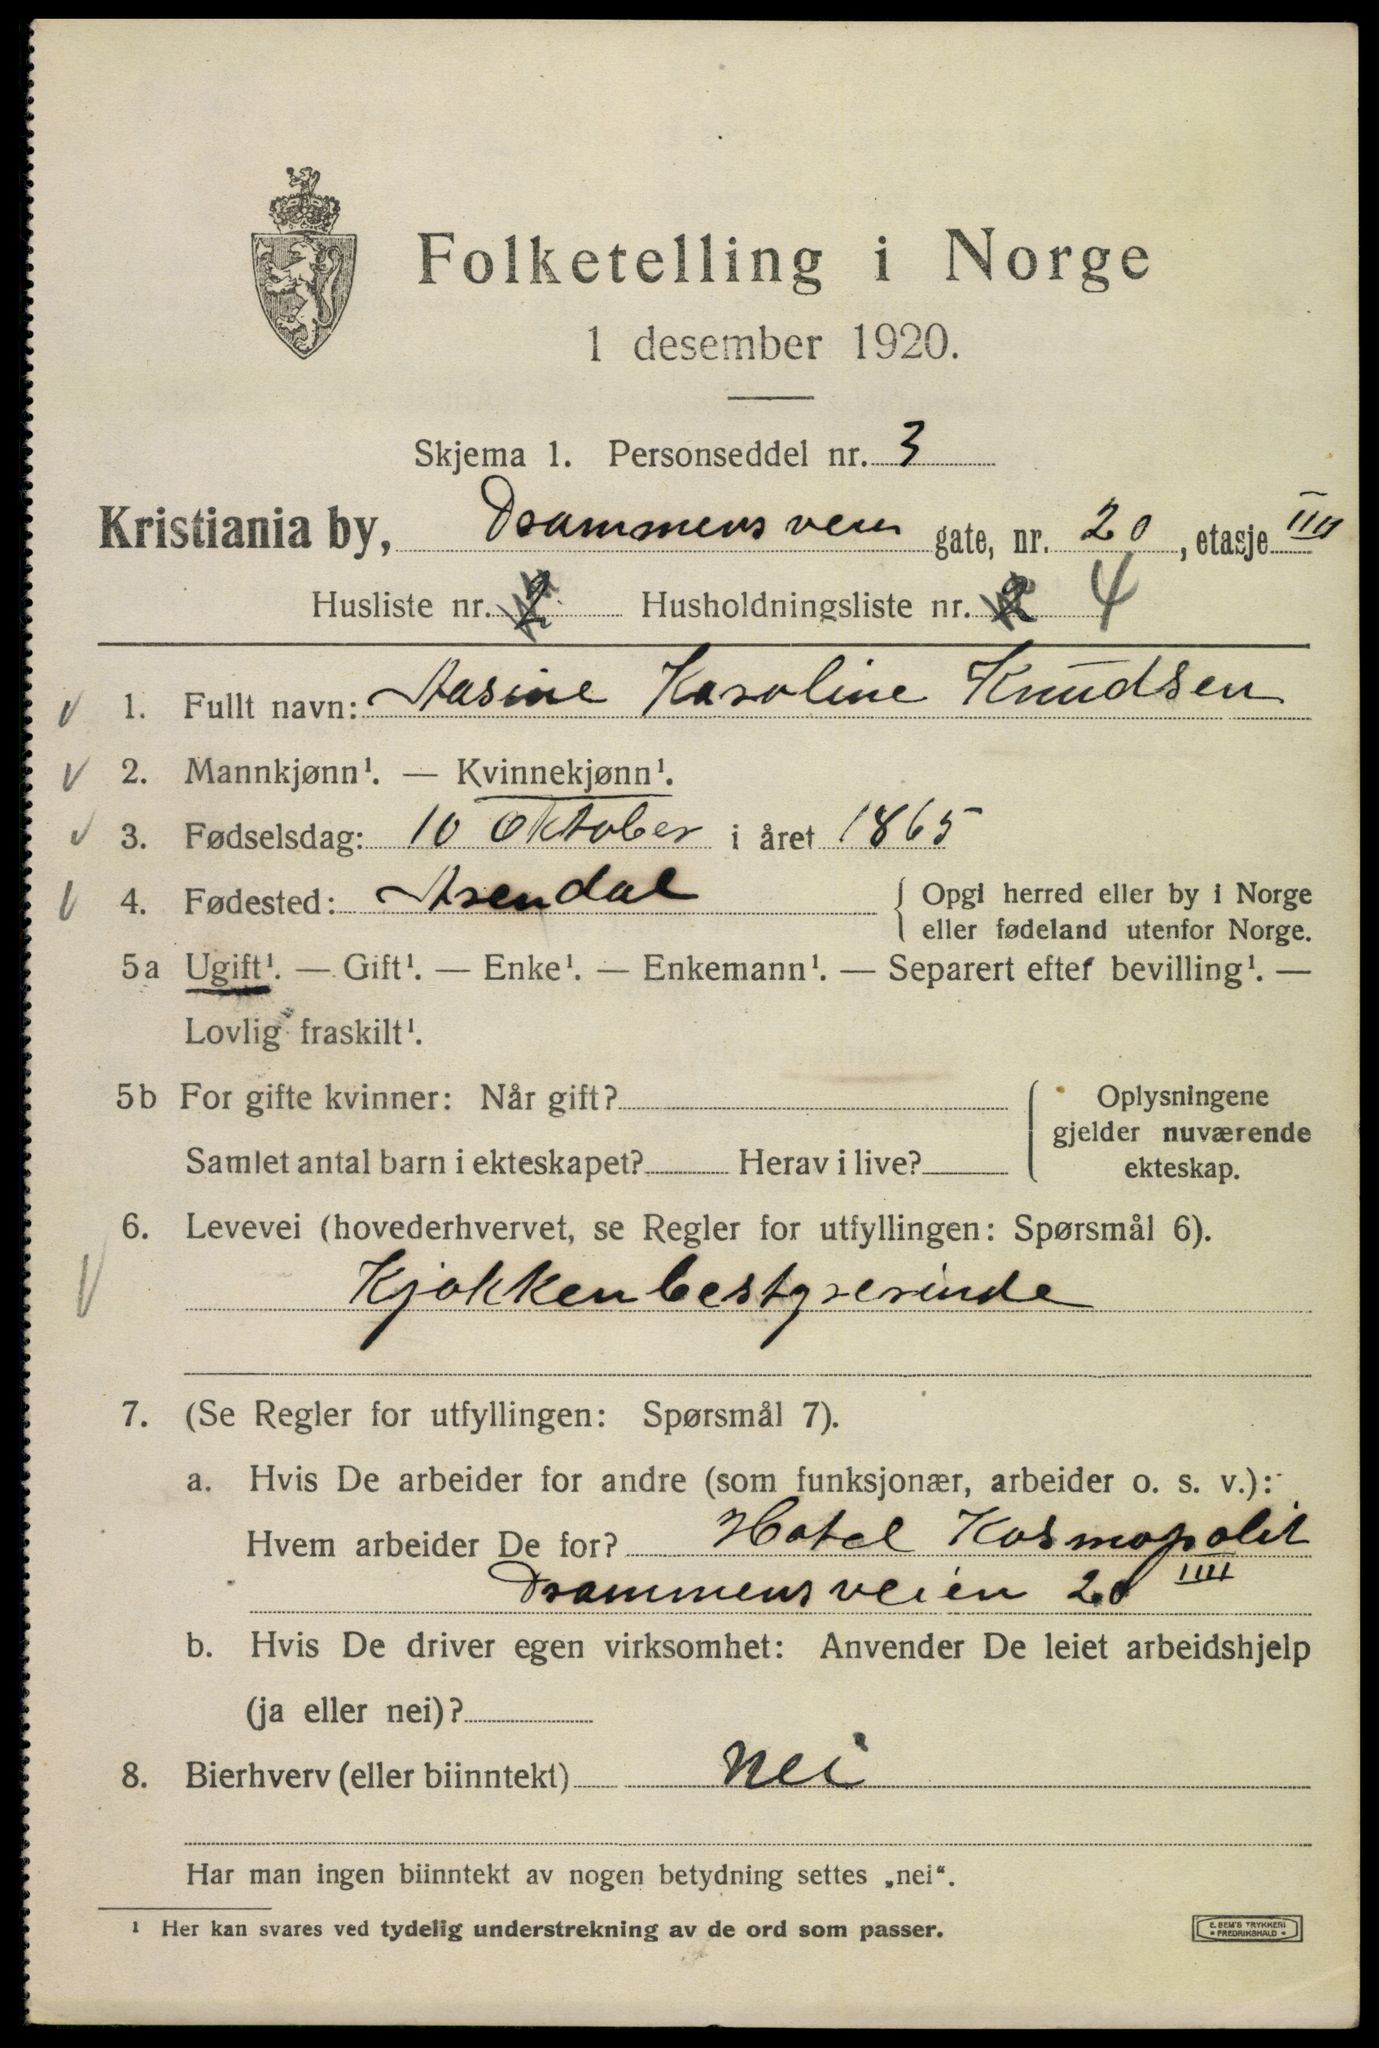 Folketelling i Norge
1 desember 1920.
Skjema 1. Personseddel nr. 3
Kristiania by, Drammensveien gate, nr. 20, etasje IIII
Husliste nr. 2 Husholdningsliste nr. 2 4
1. Fullt navn: Aasine Karoline Knudsen
2. Mannkjønn¹. — Kvinnekjønn¹.
3. Fødselsdag: 10 Oktober i året 1865
4. Fødested: Arendal { Opgi herred eller by i Norge
eller fødeland utenfor Norge.
5a Ugift¹. — Gift¹. — Enke¹. — Enkemann¹. — Separert efter bevilling¹. —
Lovlig fraskilt¹.
5b For gifte kvinner: Når gift? Oplysningene
gjelder nuværende
Samlet antal barn i ekteskapet? Herav i live? ekteskap.
6. Levevei (hovederhvervet, se Regler for utfyllingen: Spørsmål 6).
Kjøkkenbestyrerinde
7. (Se Regler for utfyllingen: Spørsmål 7).
a. Hvis De arbeider for andre (som funksjonær, arbeider o. s. v.):
Hvem arbeider De for? Hotel Kosmopolit
Drammensveien 20 IIII
b. Hvis De driver egen virksomhet: Anvender De leiet arbeidshjelp
(ja eller nei)?
8. Bierhverv (eller biinntekt) nei
Har man ingen biinntekt av nogen betydning settes „nei“.
¹ Her kan svares ved tydelig understrekning av de ord som passer.
E. SEM'S TRYKKERI
* FREDRIKSHALD *